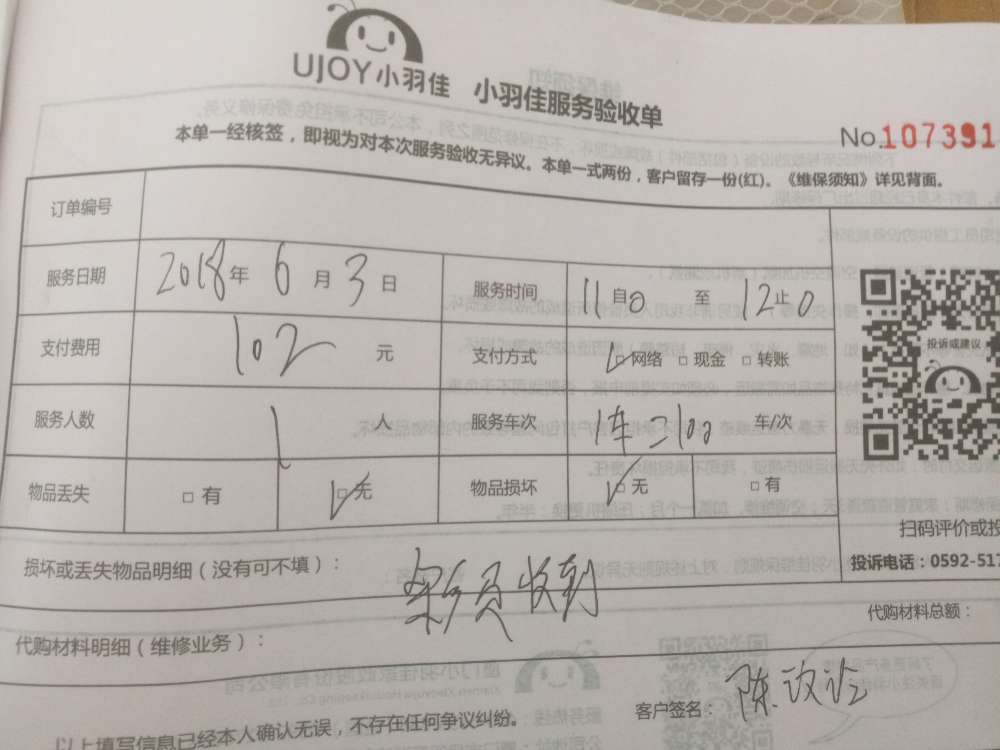 UJOY小羽佳 小羽佳服务验收单
No.107391
本单一经核签，即视为对本次服务验收无异议。本单一式两份，客户留存一份(红)。《维保须知》详见背面。
订单编号
服务日期 2018年 6 月 3 日 服务时间 11自0 至 12止0
支付费用 102 元 支付方式 ☑网络 □现金 □转账
服务人数 1 人 服务车次 车/次
物品丢失 □有 ☑无 物品损坏 ☑无 □有
投诉或建议
扫码评价或投
投诉电话：0592-517
损坏或丢失物品明细（没有可不填）：
收到
代购材料明细（维修业务）：
代购材料总额：
客户签名：陈
以上填写信息已经本人确认无误，不存在任何争议纠纷。